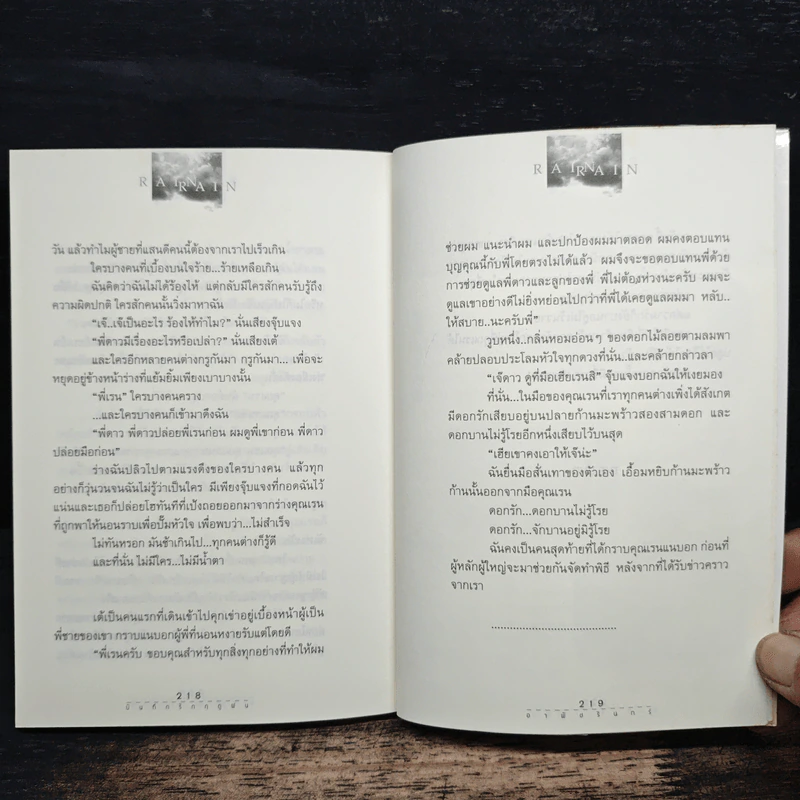 RAIRNAIN
วัน แล้วทำไมผู้ชายที่แสนดีคนนี้ต้องจากเราไปเร็วเกิน
ใครบางคนที่เบื้องบนใจร้าย...ร้ายเหลือเกิน
ฉันคิดว่าฉันไม่ได้ร้องไห้ แต่กลับมีใครสักคนรับรู้ถึง
ความผิดปกติ ใครสักคนนั้นวิ่งมาหาฉัน
“เจ๊...เจ๊เป็นอะไร ร้องไห้ทำไม?” นั่นเสียงจุ๊บแจง
“พี่ดาวมีเรื่องอะไรหรือเปล่า?” นั่นเสียงเต้
และใครอีกหลายคนต่างกรูกันมา กรูกันมา... เพื่อจะ
หยุดอยู่ข้างหน้าร่างที่แย้มยิ้มเพียงเบาบางนั้น
“พี่เรน” ใครบางคนคราง
...และใครบางคนก็เข้ามาดึงฉัน
“พี่ดาว พี่ดาวปล่อยพี่เรนก่อน ผมดูพี่เขาก่อน พี่ดาว
ปล่อยมือก่อน”
ร่างฉันปลิวไปตามแรงดึงของใครบางคน แล้วทุก
อย่างก็วุ่นวนจนฉันไม่รู้ว่าเป็นใคร มีเพียงจุ๊บแจงที่กอดฉันไว้
แน่นและเธอก็ปล่อยโฮทันทีที่เป้งถอยออกมาจากร่างคุณเรน
ที่ถูกพาให้นอนราบเพื่อปั๊มหัวใจ เพื่อพบว่า...ไม่สำเร็จ
ไม่ทันหรอก มันช้าเกินไป...ทุกคนต่างก็รู้ดี
และที่นั่น ไม่มีใคร...ไม่มีน้ำตา
เต้เป็นคนแรกที่เดินเข้าไปคุกเข่าอยู่เบื้องหน้าผู้เป็น
พี่ชายของเขา กราบแนบอกผู้พี่ที่นอนหงายรับแต่โดยดี
“พี่เรนครับ ขอบคุณสำหรับทุกสิ่งทุกอย่างที่ทำให้ผม
218
บันทึกรักฤดูฝน
RAIRNAIN
ช่วยผม แนะนำผม และปกป้องผมมาตลอด ผมคงตอบแทน
บุญคุณนี้กับพี่โดยตรงไม่ได้แล้ว ผมจึงจะขอตอบแทนพี่ด้วย
การช่วยดูแลพี่ดาวและลูกของพี่ พี่ไม่ต้องห่วงนะครับ ผมจะ
ดูแลเขาอย่างดีไม่ยิ่งหย่อนไปกว่าที่พี่ได้เคยดูแลผมมา หลับ..
ให้สบาย..นะครับพี่”
วูบหนึ่ง..กลิ่นหอมอ่อนๆ ของดอกไม้ลอยตามลมพา
คล้ายปลอบประโลมหัวใจทุกดวงที่นั่น..และคล้ายกล่าวลา
“เจ๊ดาว ดูที่มือเฮียเรนสิ” จุ๊บแจงบอกฉันให้เงยมอง
ที่นั่น...ในมือของคุณเรนที่เราทุกคนต่างเพิ่งได้สังเกต
มีดอกรักเสียบอยู่บนปลายก้านมะพร้าวสองสามดอก และ
ดอกบานไม่รู้โรยอีกหนึ่งเสียบไว้บนสุด
“เฮียเขาคงเอาให้เจ๊น่ะ”
ฉันยื่นมือสั่นเทาของตัวเอง เอื้อมหยิบก้านมะพร้าว
ก้านนั้นออกจากมือคุณเรน
ดอกรัก...ดอกบานไม่รู้โรย
ดอกรัก...จักบานอยู่มิรู้โรย
ฉันคงเป็นคนสุดท้ายที่ได้กราบคุณเรนแนบอก ก่อนที่
ผู้หลักผู้ใหญ่จะมาช่วยกันจัดทำพิธี หลังจากที่ได้รับข่าวคราว
จากเรา
....................................
219